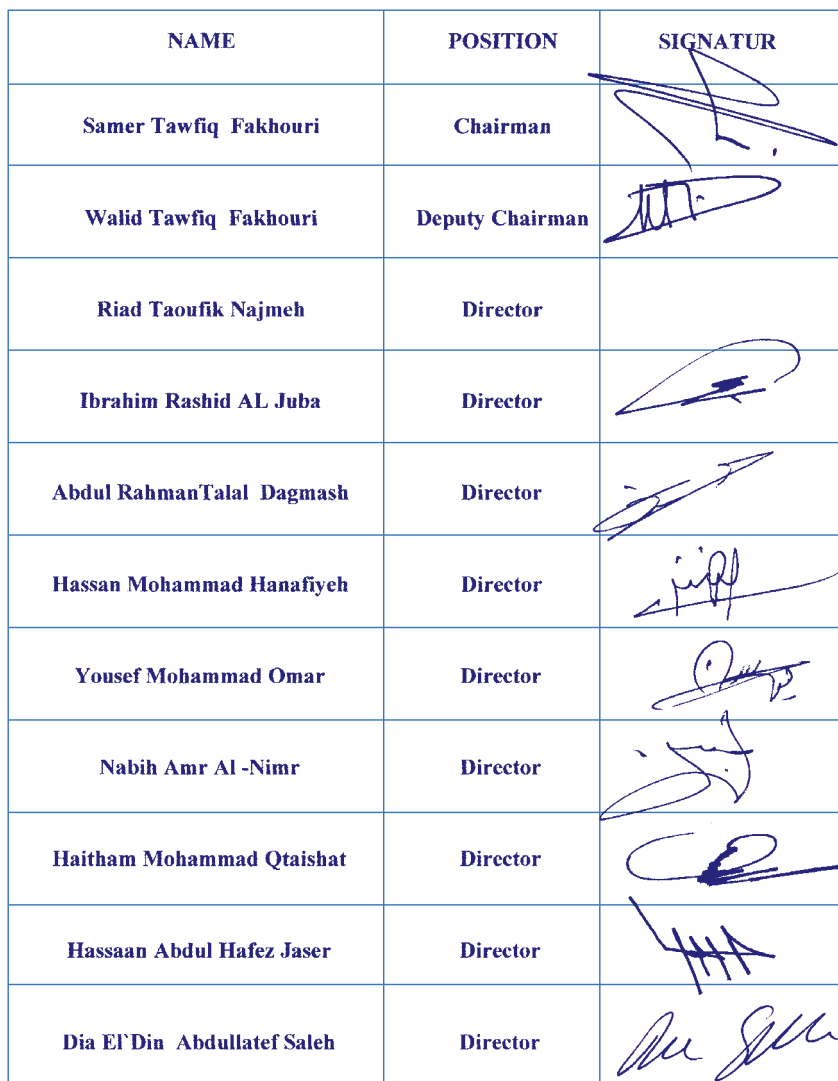 NAME POSITION SIGNATUR
Samer Tawfiq Fakhouri Chairman
Walid Tawfiq Fakhouri Deputy Chairman
Riad Taoufik Najmeh Director
Ibrahim Rashid AL Juba Director
Abdul RahmanTalal Dagmash Director
Hassan Mohammad Hanafiyeh Director
Yousef Mohammad Omar Director
Nabih Amr Al -Nimr Director
Haitham Mohammad Qtaishat Director
Hassaan Abdul Hafez Jaser Director
Dia El`Din Abdullatef Saleh Director